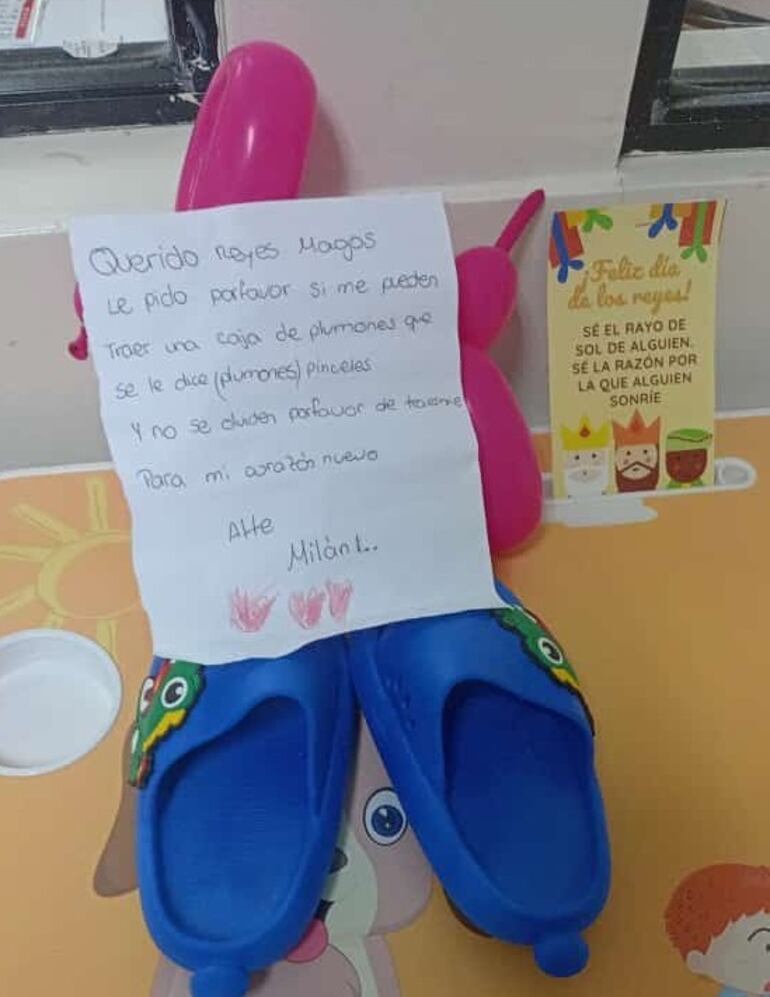 Querido Reyes Magos
Le pido porfavor si me pueden
Traer una caja de plumones que
se le dice (plumones) pinceles
Y no se olviden porfavor de traerme
Para mi corazón nuevo
Atte
Milán L..
¡Feliz día
de los reyes!
SÉ EL RAYO DE
SOL DE ALGUIEN.
SÉ LA RAZÓN POR
LA QUE ALGUIEN
SONRÍE